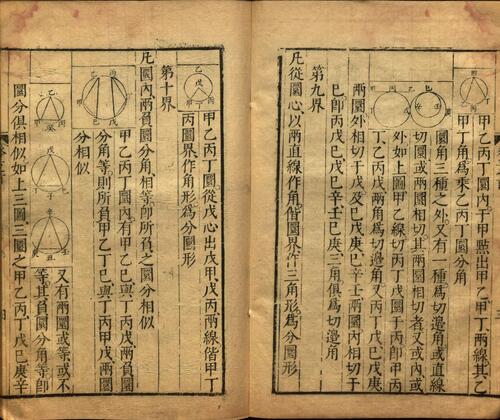 甲乙丙丁圜內于甲點出甲乙甲丁兩線其乙
甲丁角爲乘乙丙丁圜分角
圜角三種之外又有一種爲切邊角或直線
切圜或兩圜相切其兩圜相切者又或內或
外如上圖甲乙線切丙丁戊圜于丙卽甲丙
丁乙丙戊兩角爲切邊角又丙丁戊己戊庚
兩圜外相切于戊及己戊庚己辛壬兩圜內相切于
己卽丙戊己戊己辛壬己庚三角俱爲切邊角
第九界
凡從圜心以兩直線作角偕圜界作三角形爲分圜形
甲乙丙丁圜從戊心出戊甲戊丙兩線偕甲丁
丙圜界作角形爲分圜形
第十界
凡圜內兩負圜分角相等卽所負之圜分相似
甲乙丙丁圜內有甲乙己與丁丙戊兩負圜
分角等則所負甲乙丁己與丁丙甲戊兩圜
分相似
又有兩圜或等或不
等其負圜分角等卽
圜分俱相似如上三圖三圜之甲乙丙丁戊己庚辛